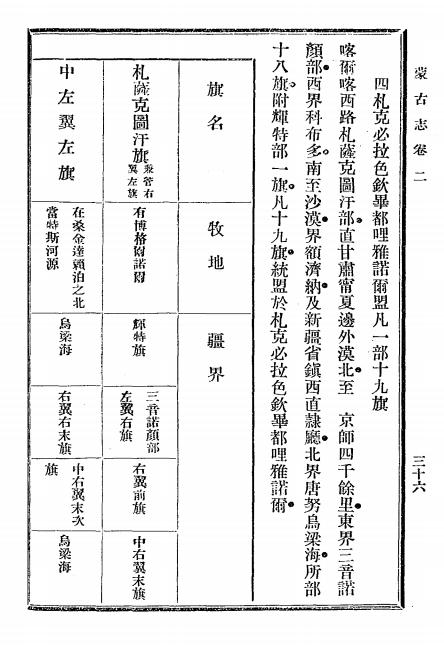 蒙古志卷二
三十六
四札克必拉色欽畢都哩雅諾爾盟凡一部十九旗
喀爾喀西路札薩克圖汗部直甘肅甯夏邊外漠北至　京師四千餘里東界三音諾
顏部西界科布多南至沙漠界額濟納及新疆省鎮西直隸廳北界唐努烏梁海所部
十八旗附輝特部一旗凡十九旗統盟於札克必拉色欽畢都哩雅諾爾
旗名　牧地　疆界
札薩克圖汗旗兼管右翼左旗　有博格爾諾爾　輝特旗　三音諾顏部左翼右旗　右翼前旗　中右翼末旗
中左翼左旗　在桑金達賴泊之北當特斯河源　烏梁海　右翼右末旗　中右翼末次旗　烏梁海